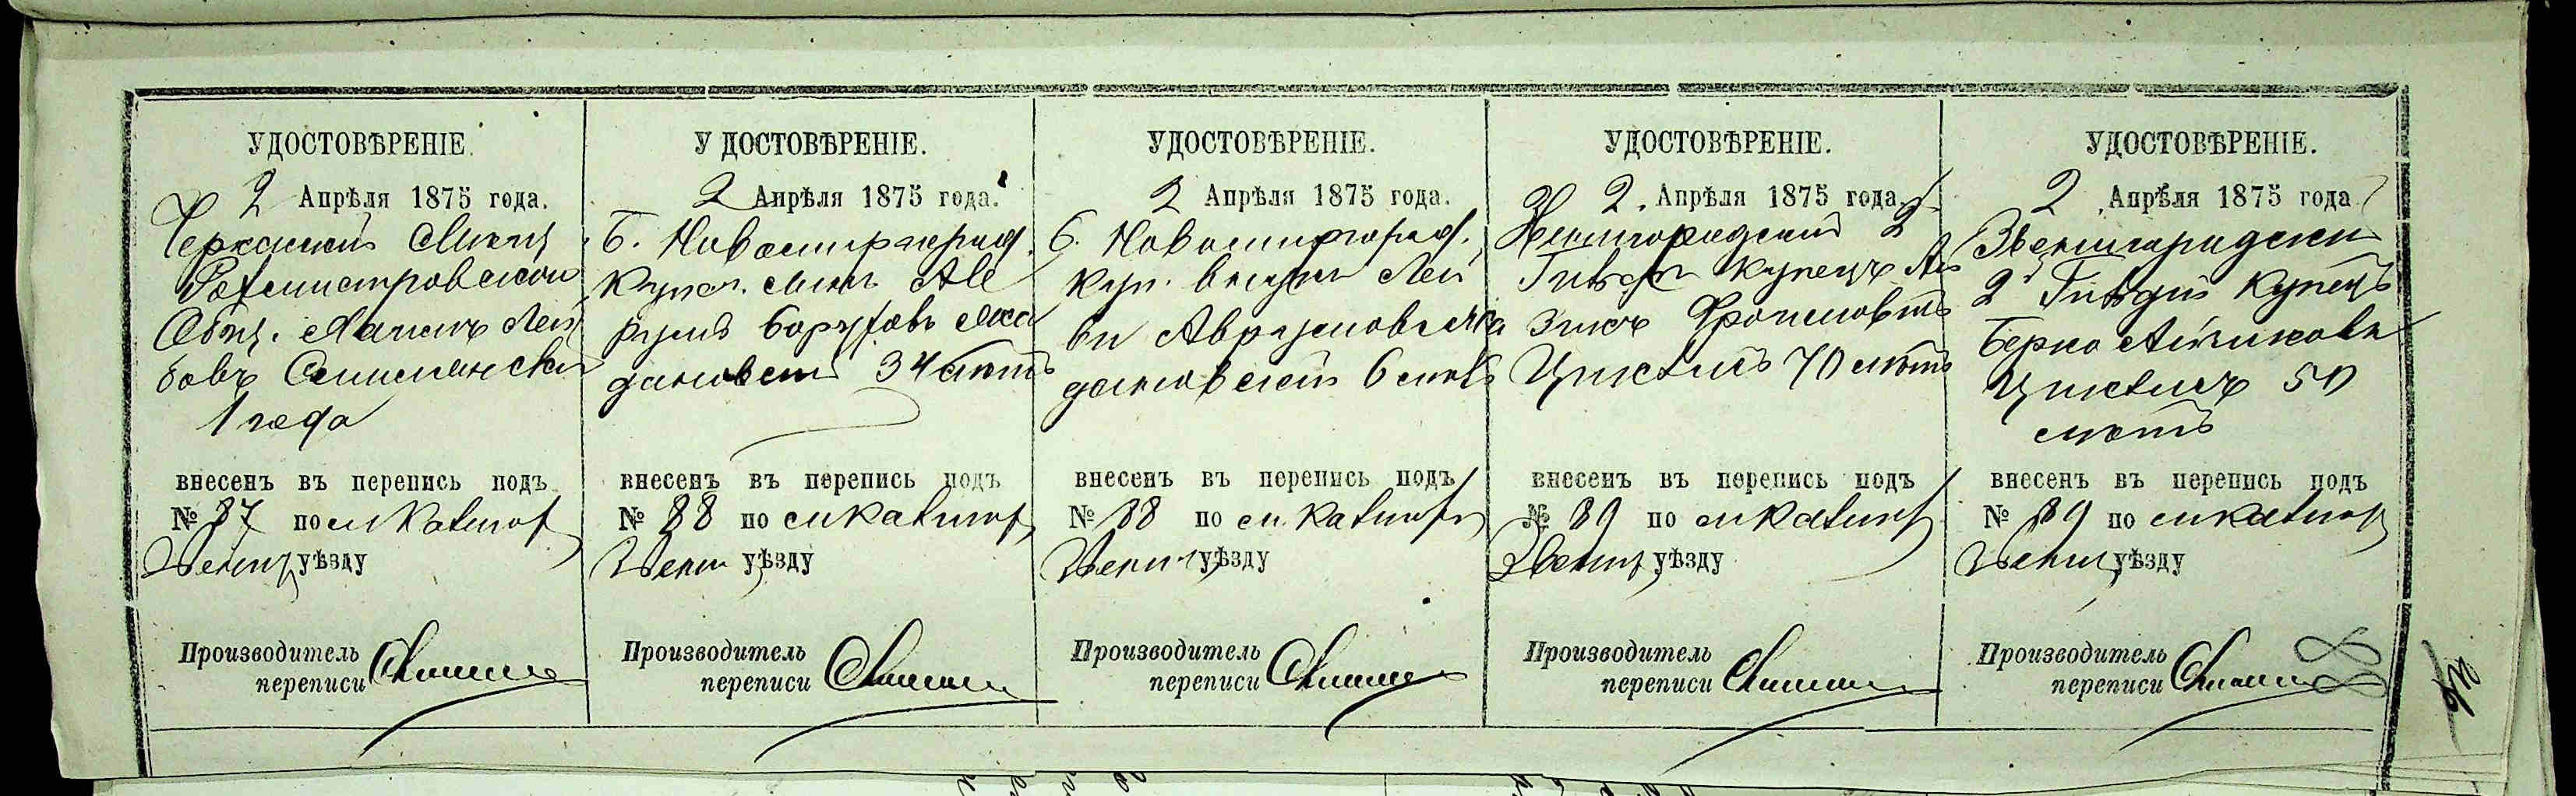 УДОСТОВѢРЕНІЕ.
2 Апрѣля 1875 года.
Черкаскій Мѣщ
Ротмистровской
Общ. Лей
бовъ
1 года
внесенъ въ перепись подъ
№ 87 по м Катерноп
Звениг уѣзду
Производитель
переписи
УДОСТОВѢРЕНІЕ.
2 Апрѣля 1875 года.
Б. Новомиргород.
купеч. сынъ Ав
румъ Боруховъ
34 лѣтъ
внесенъ въ перепись подъ
№ 88 по м Катерноп
Звениг уѣзду
Производитель
переписи
УДОСТОВѢРЕНІЕ.
2 Апрѣля 1875 года.
б. Новомиргород.
куп. внукъ Лей
ба Аврумовъ
6 лѣтъ
внесенъ въ перепись подъ
№ 88 по м. Катерноп
Звениг уѣзду
Производитель
переписи
УДОСТОВѢРЕНІЕ.
2 Апрѣля 1875 года.
Звенигородскій 2
Гильд купецъ Ай
зикъ Фроимовъ
70 лѣтъ
внесенъ въ перепись подъ
№ 89 по м Катерноп
Звениг уѣзду
Производитель
переписи
УДОСТОВѢРЕНІЕ.
2 Апрѣля 1875 года
Звенигородскій
2 Гильдіи купецъ
Берко Айзиковъ
50
лѣтъ
внесенъ въ перепись подъ
№ 89 по м Катерноп
Звениг уѣзду
Производитель
переписи